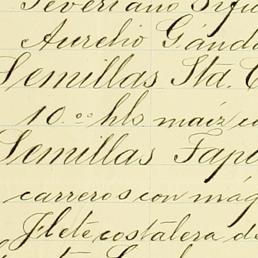 Severiano Sifu
Aurelio Gánda
Semillas Sta. C
10.00 hls maíz co
Semillas Tapo
carreros con máq
Flete costalera de